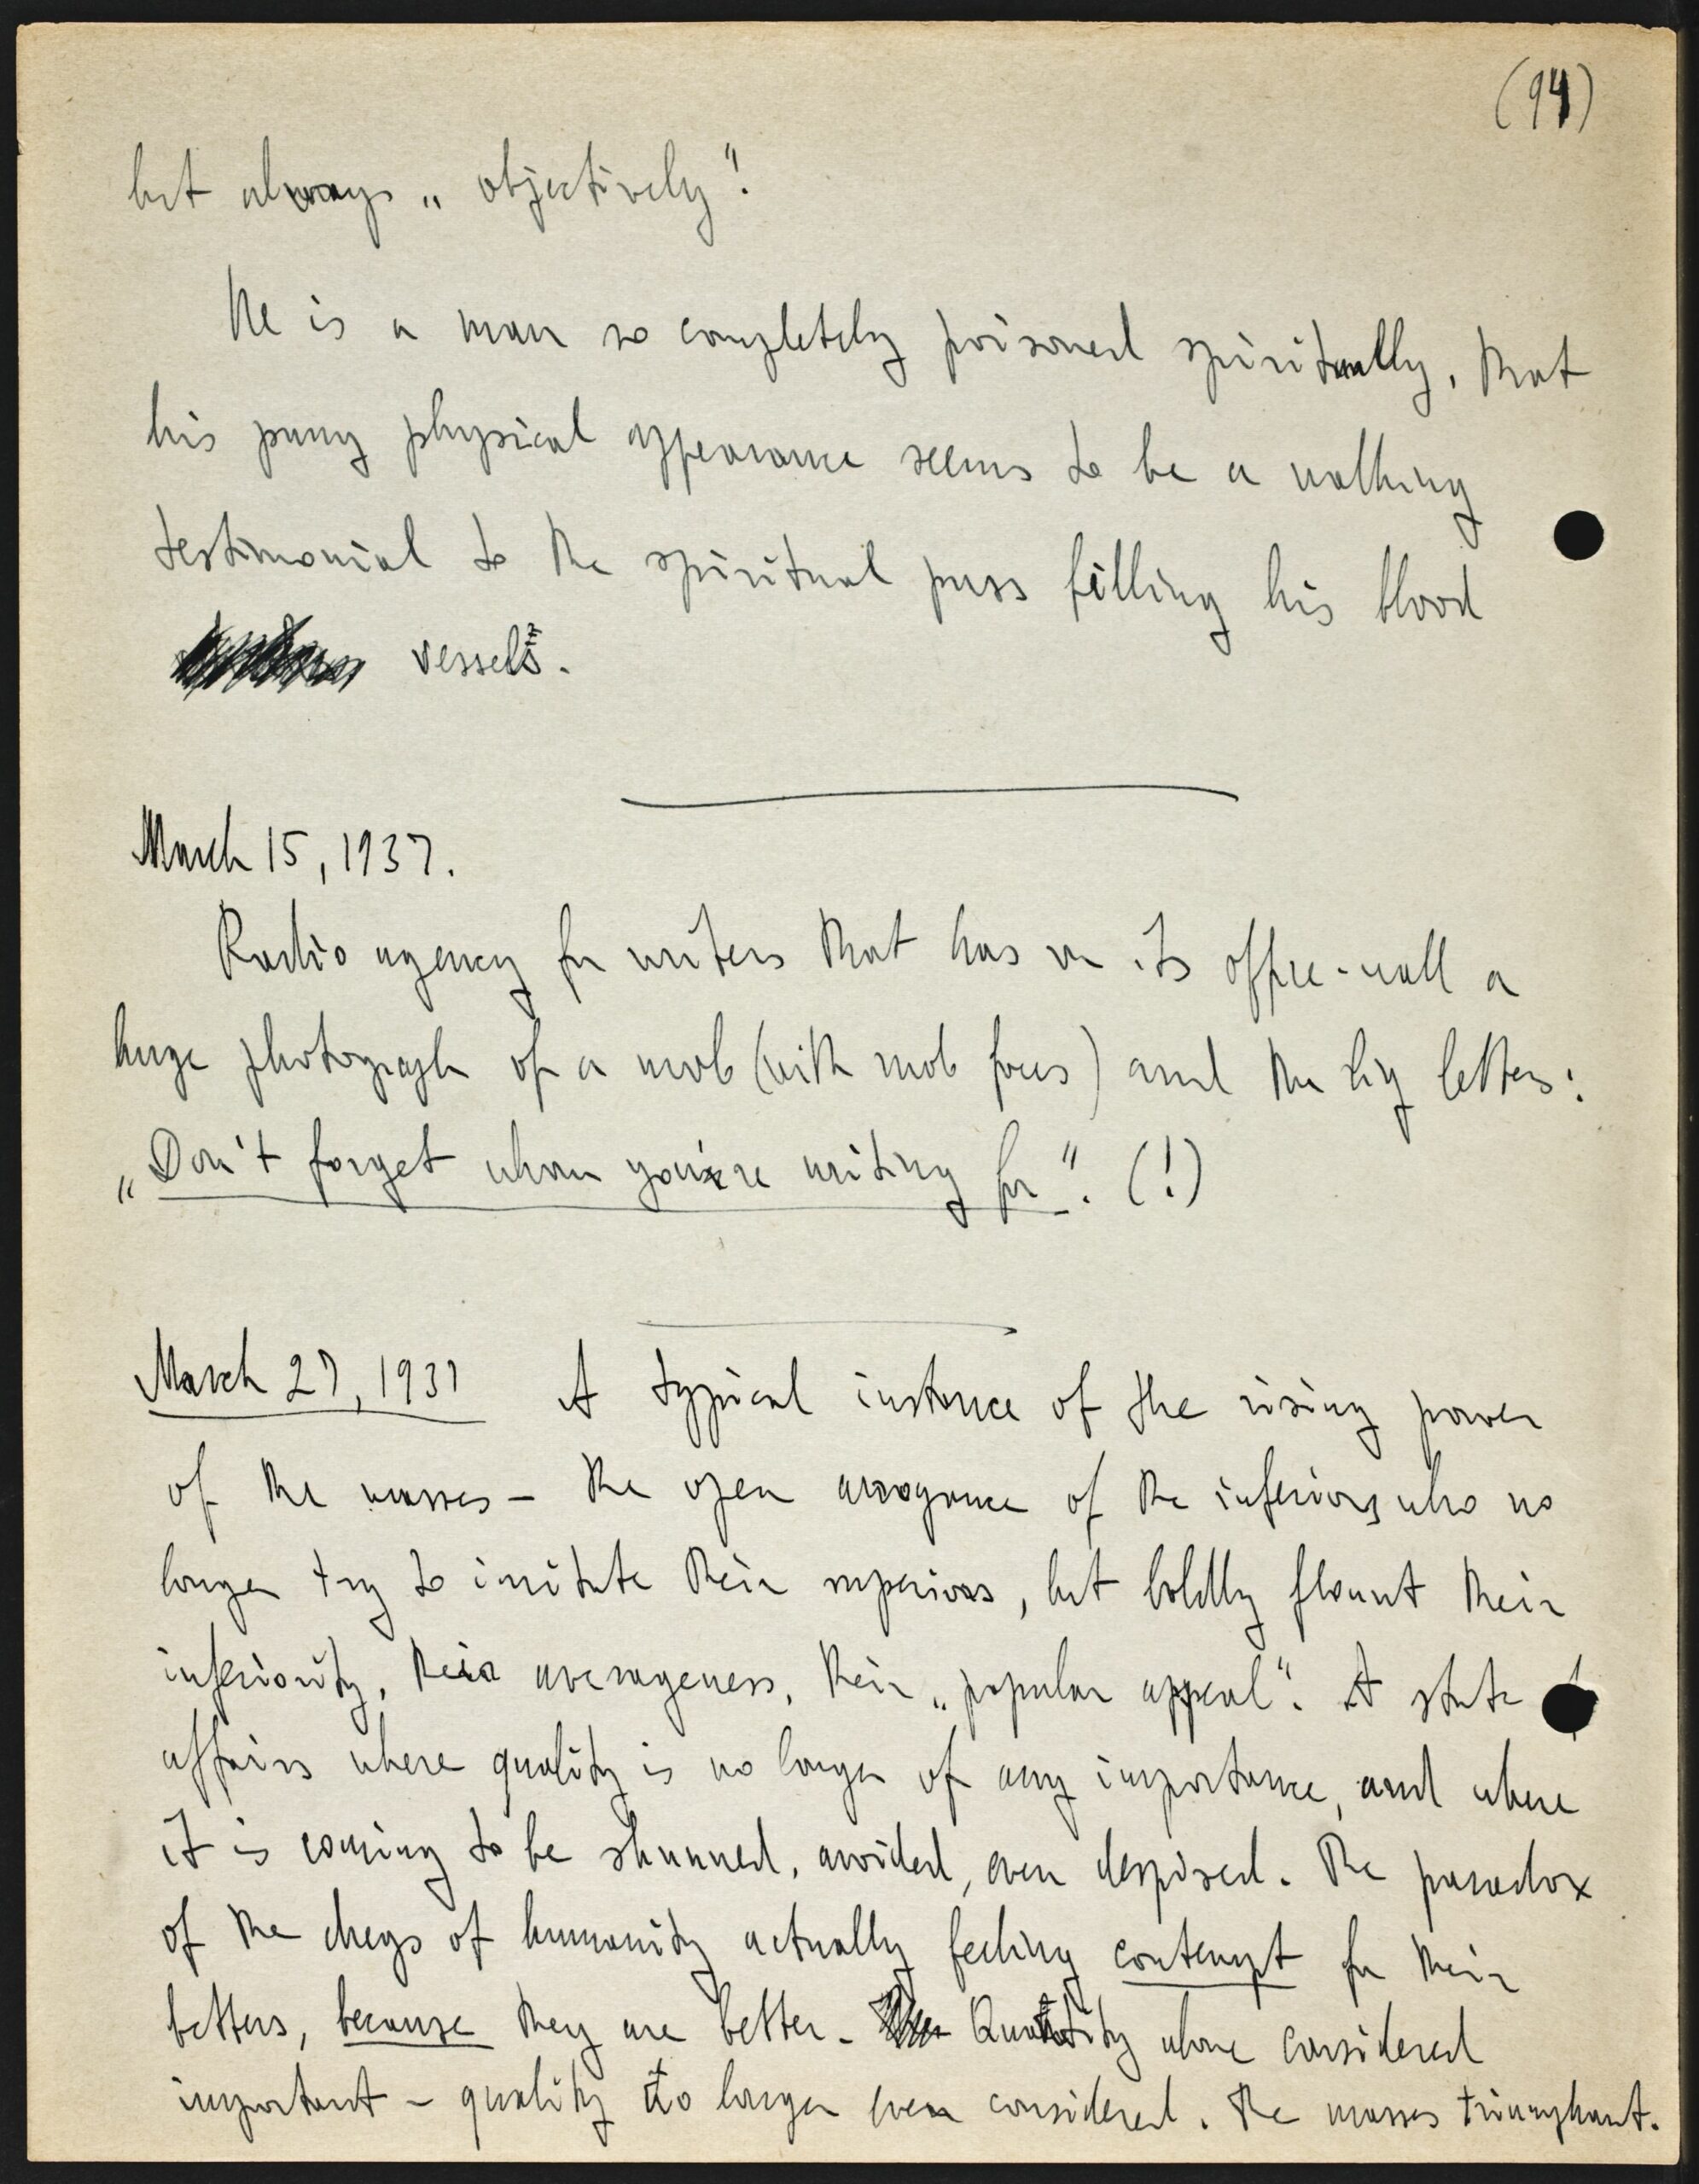 (94)
but always „objectively".
He is a man so completely poisoned spiritually, that
his puny physical appearance seems to be a walking
testimonial to the spiritual puss filling his blood
vessels.
March 15, 1937.
Radio agency for writers that has on its office-wall a
huge photograph of a mob (with mob faces) and the big letters:
„Don't forget whom you're writing for". (!)
March 27, 1937 A typical instance of the rising power
of the masses – the open arrogance of the inferiors who no
longer try to imitate their superiors, but boldly flaunt their
inferiority, their averageness, their „popular appeal". A state of
affairs where quality is no longer of any importance, and where
it is coming to be shunned, avoided, even despised. The paradox
of the dregs of humanity actually feeling contempt for their
betters, because they are better. Quantity alone considered
important – quality no longer even considered. The masses triumphant.